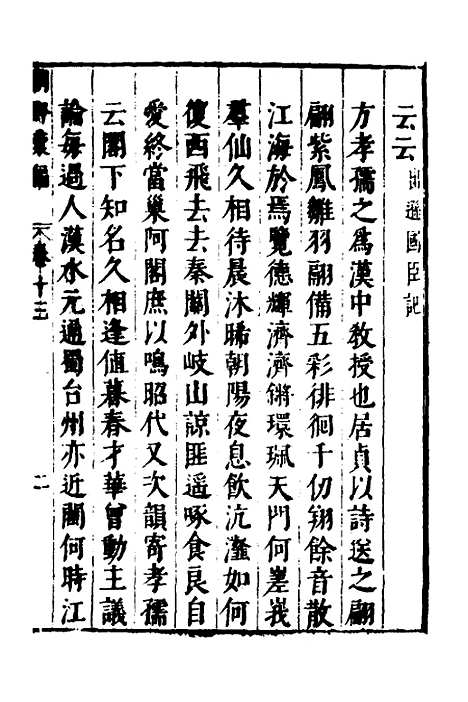 云云出遜國臣記
方孝孺之為漢中教授也居貞以詩送之翩
翩紫鳳雛羽翮備五彩徘徊千仞翔餘音散
江海於焉覽德輝濟濟鏘環珮天門何嵳峩
羣仙久相待晨沐晞朝陽夜息飲沆瀣如何
復西飛去去秦關外岐山諒匪遥啄食良自
愛終當巢阿閣庶以鳴昭代又次韻寄孝孺
云閣下知名久相逢値暮春才華曾動主議
論每過人漢水元通蜀台州亦近閩何時江
卷十三
二